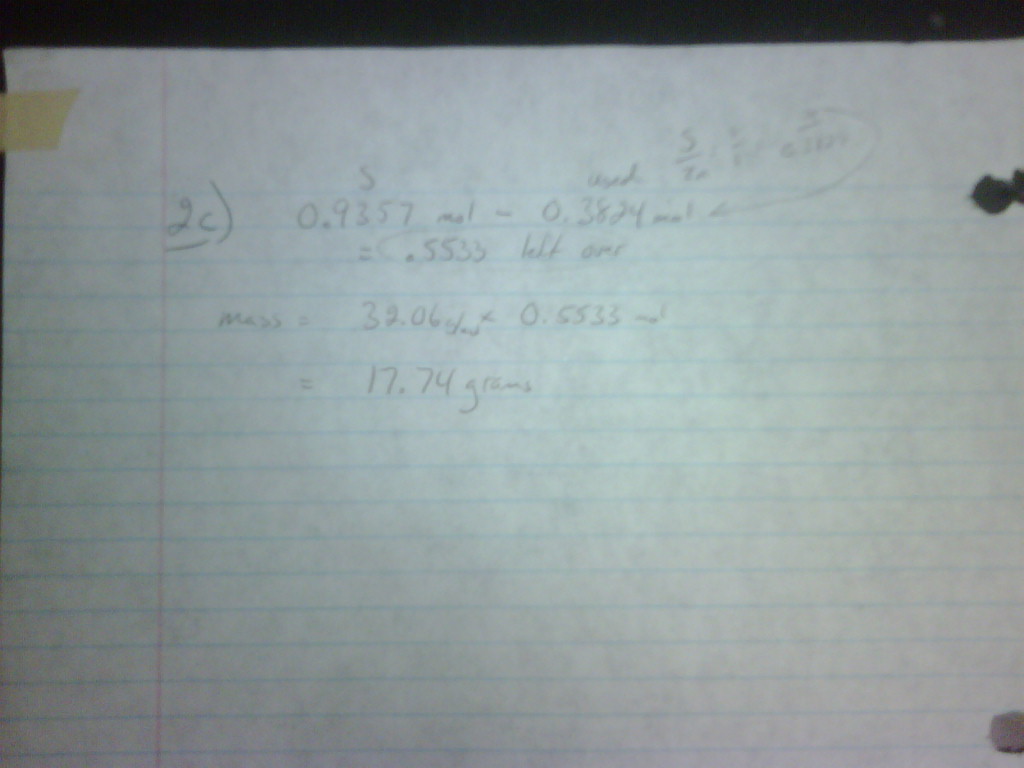 S
Zn
S used
2c) 0.9357 mol - 0.3824 mol
= .5533 left over
mass = 32.06 g/mol × 0.5533 mol
= 17.74 grams